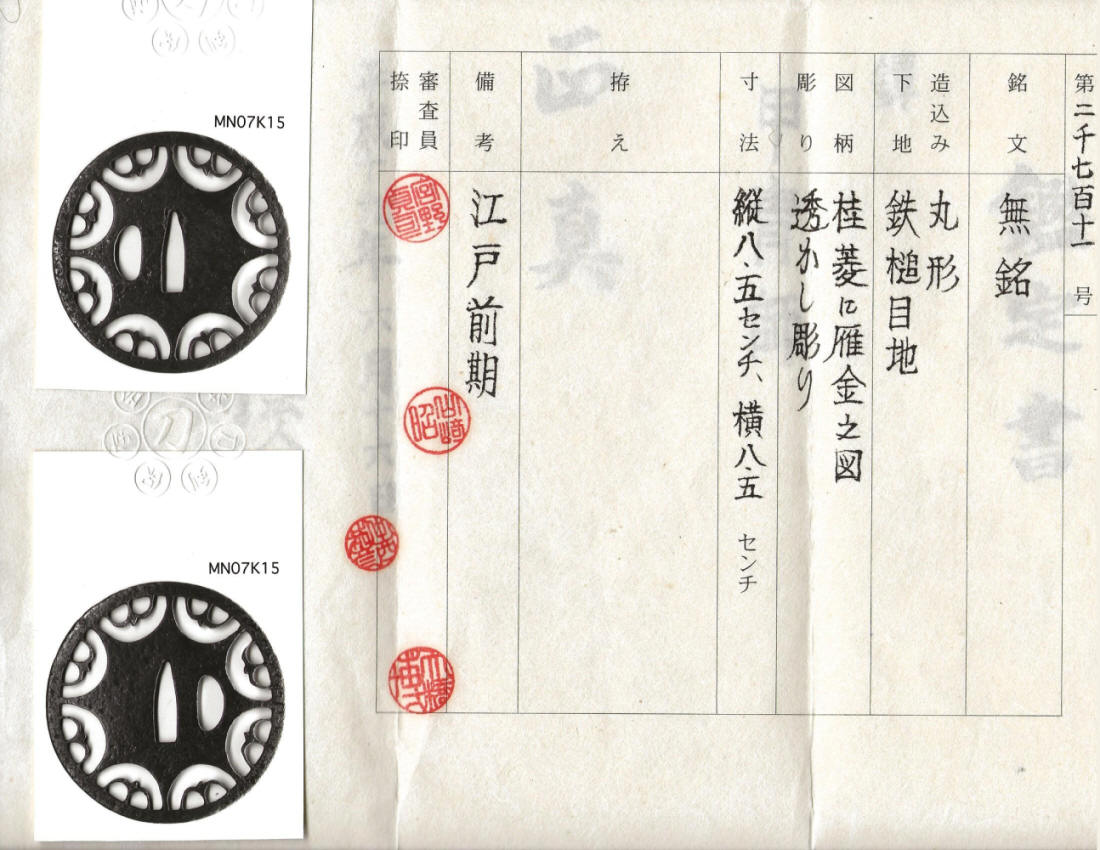 第二千七百十一号
銘文
無銘
造込み
下地
丸形
鉄槌目地
図柄
彫り
桂菱に雁金之図
透かし彫り
寸法
縦八・五センチ、横八・五 センチ
拵え
備考
江戸前期
審査員
捺印
MN07K15
MN07K15